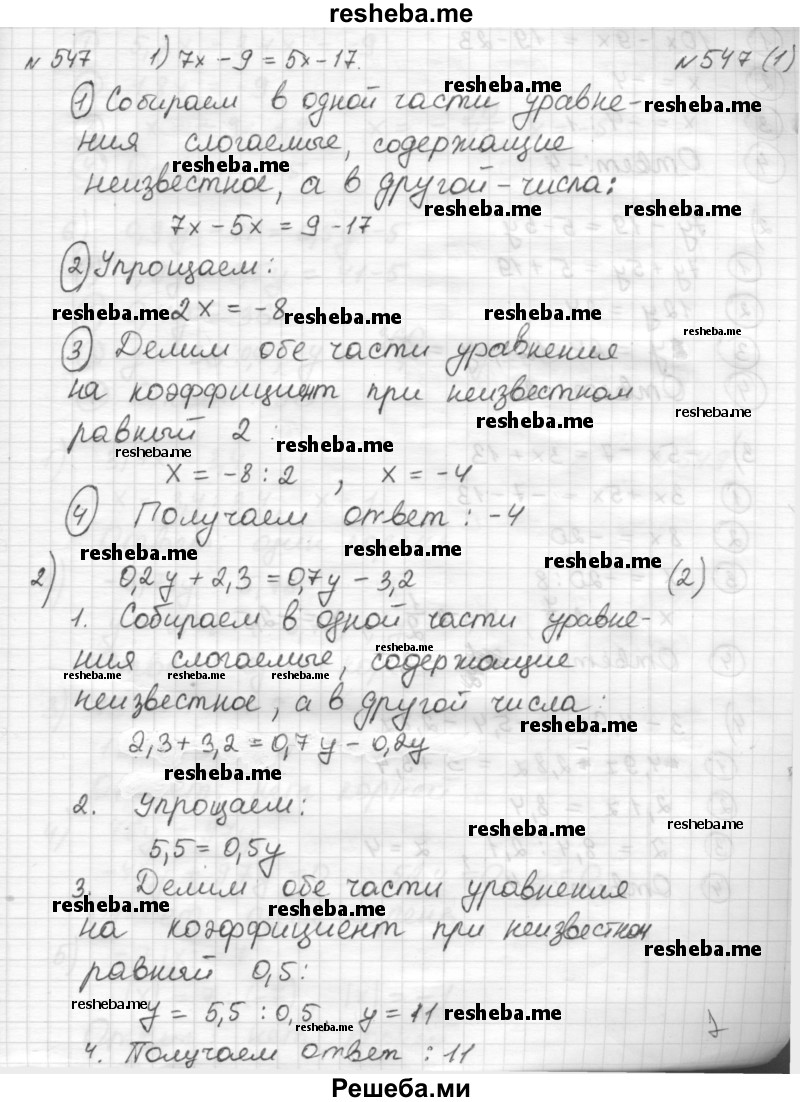 resheba.me
№ 547 1) 7x - 9 = 5x - 17. № 547 (1)
① Собираем в одной части уравне-
resheba.me resheba.me
ния слогаемые, содержащие
resheba.me
неизвестное, а в другой - числа:
resheba.me resheba.me
7x - 5x = 9 - 17
② Упрощаем:
2x = -8
resheba.me resheba.me resheba.me
resheba.me
③ Делим обе части уравнения
на коэффициент при неизвестном
resheba.me resheba.me
равный 2 :
resheba.me resheba.me
x = -8 : 2 , x = -4
④ Получаем ответ : -4
resheba.me resheba.me resheba.me
2) 0,2y + 2,3 = 0,7y - 3,2 (2)
1. Собираем в одной части уравне-
resheba.me
ния слогаемые, содержащие
resheba.me resheba.me resheba.me
неизвестное, а в другой числа:
resheba.me
2,3 + 3,2 = 0,7y - 0,2y
resheba.me
2. Упрощаем:
resheba.me resheba.me
5,5 = 0,5y
3. Делим обе части уравнения
resheba.me resheba.me
на коэффициент при неизвестном
resheba.me
равный 0,5:
resheba.me resheba.me
y = 5,5 : 0,5 y = 11
resheba.me
4. Получаем ответ : 11
Решеба.ми